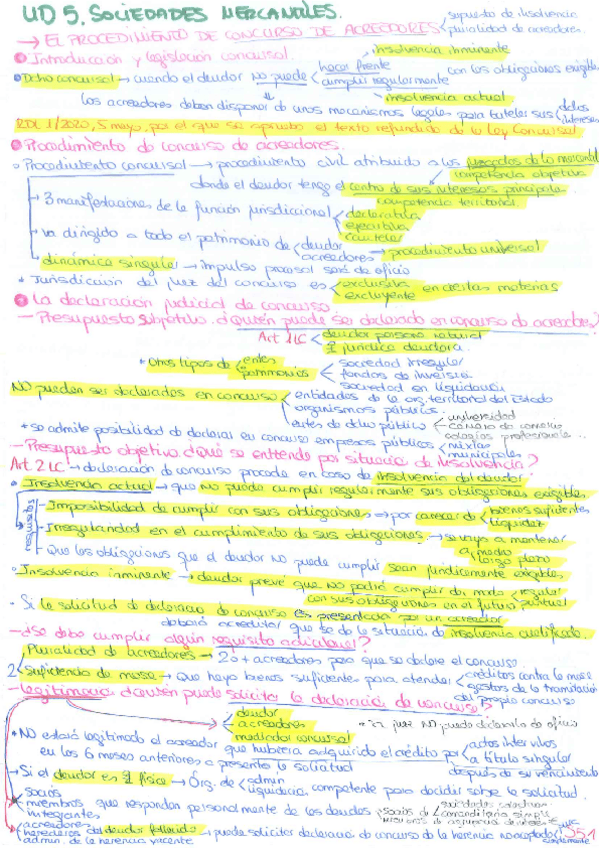 UD 5. SOCIEDADES MERCANTILES.
→ EL PROCEDIMIENTO DE CONCURSO DE ACREEDORES supuesto de insolvencia
pluralidad de acreedores.
insolvencia inminente
Introducción y legislación concursal.
Dcho concursal → cuando el deudor no puede hacer frente con las obligaciones exigibles
cumplir regularmente
insolvencia actual
los acreedores deben disponer de unos mecanismos legales para tutelar sus dchos
intereses
RDL 1/2020, 5 mayo, por el que se aprueba el texto refundido de la Ley Concursal
Procedimiento de concurso de acreedores.
Procedimiento concursal → procedimiento civil atribuido a los juzgados de lo mercantil
competencia objetiva
donde el deudor tenga el centro de sus intereses principales
competencia territorial
3 manifestaciones de la función jurisdiccional declarativa
ejecutiva
cautelar
va dirigido a todo el patrimonio de deudor
acreedores → procedimiento universal
dinámica singular → impulso procesal será de oficio
* Jurisdicción del juez del concurso es exclusiva en ciertas materias
excluyente
La declaración judicial de concurso.
- Presupuesto subjetivo. ¿Quién puede ser declarado en concurso de acreedores?
Art 1 LC deudor persona natural
jurídica deudora.
* Otros tipos de entes
patrimonios
sociedad irregular
fondos de inversión
sociedad en liquidación
NO pueden ser declarados en concurso entidades de la org. territorial del Estado
organismos públicos
entes de dcho público universidad
cámara de comercio
colegios profesionales...
* se admite posibilidad de declarar en concurso empresas públicas mixtas
municipales
- Presupuesto objetivo ¿qué se entiende por situación de insolvencia?
Art. 2 LC → declaración de concurso procede en caso de insolvencia del deudor
Insolvencia actual → que no puede cumplir regularmente sus obligaciones exigibles.
requisitos
- Imposibilidad de cumplir con sus obligaciones → por carecer de bienes suficientes
liquidez
- Irregularidad en el cumplimiento de sus obligaciones → se vaya a mantener
a medio
largo plazo
- Que las obligaciones que el deudor NO puede cumplir sean jurídicamente exigibles
Insolvencia inminente → deudor prevé que NO podrá cumplir de modo regular
con sus obligaciones en el futuro puntual
Si la solicitud de declaración de concurso es presentada por un acreedor
deberá acreditar que se da la situación de insolvencia cualificada.
- ¿Se debe cumplir algún requisito adicional?
Pluralidad de acreedores → 2 o + acreedores para que se declare el concurso.
2 Suficiencia de masa → que haya bienes suficientes para atender créditos contra la masa
gastos de la tramitación
del propio concurso
- Legitimación ¿quién puede solicitar la declaración de concurso?
deudor
acreedores
mediador concursal
juez NO puede declararlo de oficio
NO estará legitimado el acreedor que hubiera adquirido el crédito por actos intervivos
a título singular
en los 6 meses anteriores a presentar la solicitud
después de su vencimiento
Si el deudor es física → Órg. de admin
liquidación competente para decidir sobre la solicitud.
socios
miembros que responden personalmente de las deudas
integrantes
acreedores
herederos del deudor fallecido → puede solicitar declaración de concurso de la herencia no aceptada
admin. de la herencia yacente
simplemente